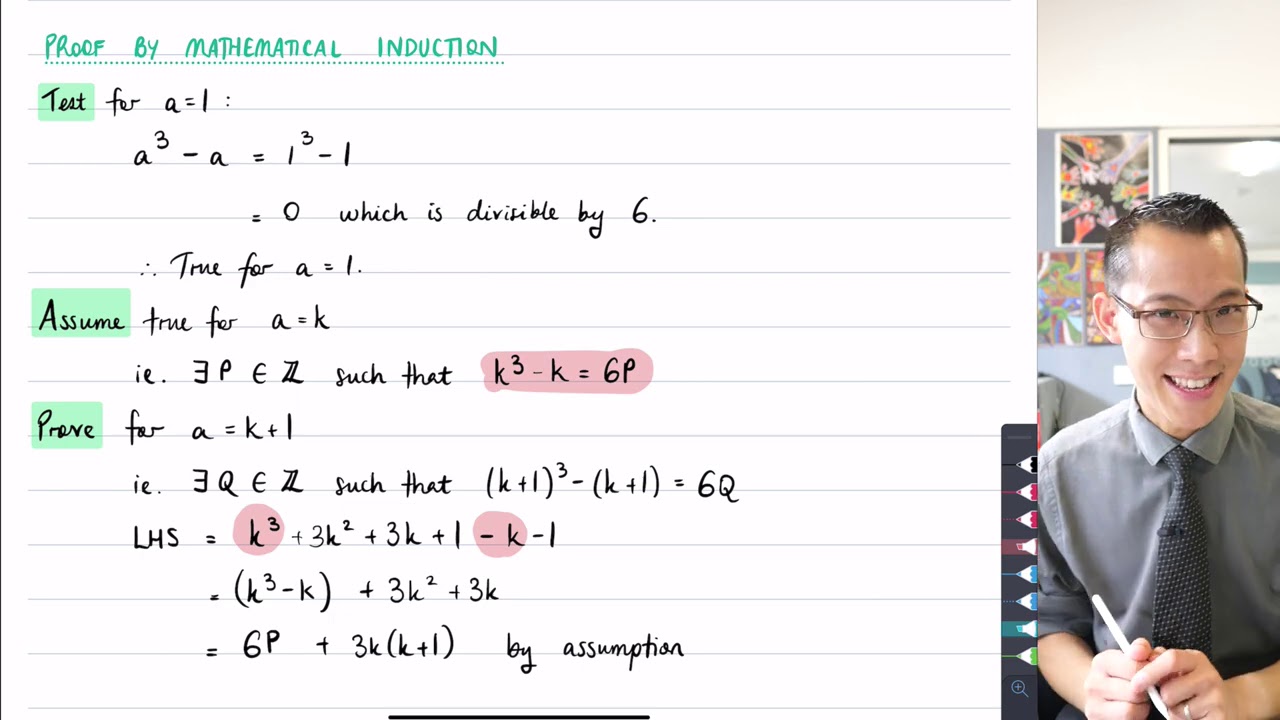 PROOF BY MATHEMATICAL INDUCTION
Test for a=1:
a³ - a = 1³ - 1
= 0 which is divisible by 6.
∴ True for a = 1.
Assume true for a = k
ie. ∃ P ∈ ℤ such that k³ - k = 6P
Prove for a = k+1
ie. ∃ Q ∈ ℤ such that (k+1)³ - (k+1) = 6Q
LHS = k³ + 3k² + 3k + 1 - k - 1
= (k³ - k) + 3k² + 3k
= 6P + 3k(k+1) by assumption